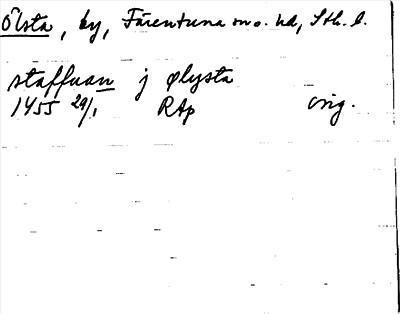 Ölsta, by, Färentuna sn o. hd, Sth. l.
staffuan j ølysta
1455 29/1 RAp orig.